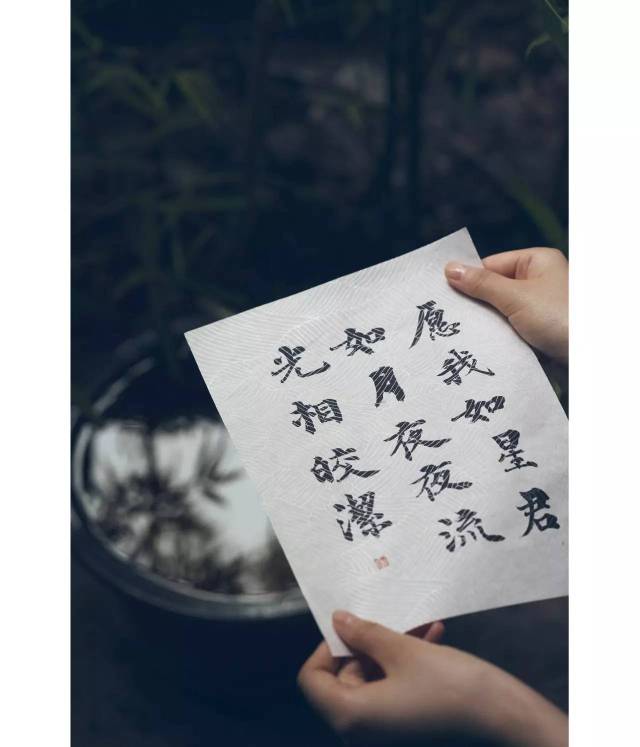 愿我如星君
如月夜夜流
光相皎潔